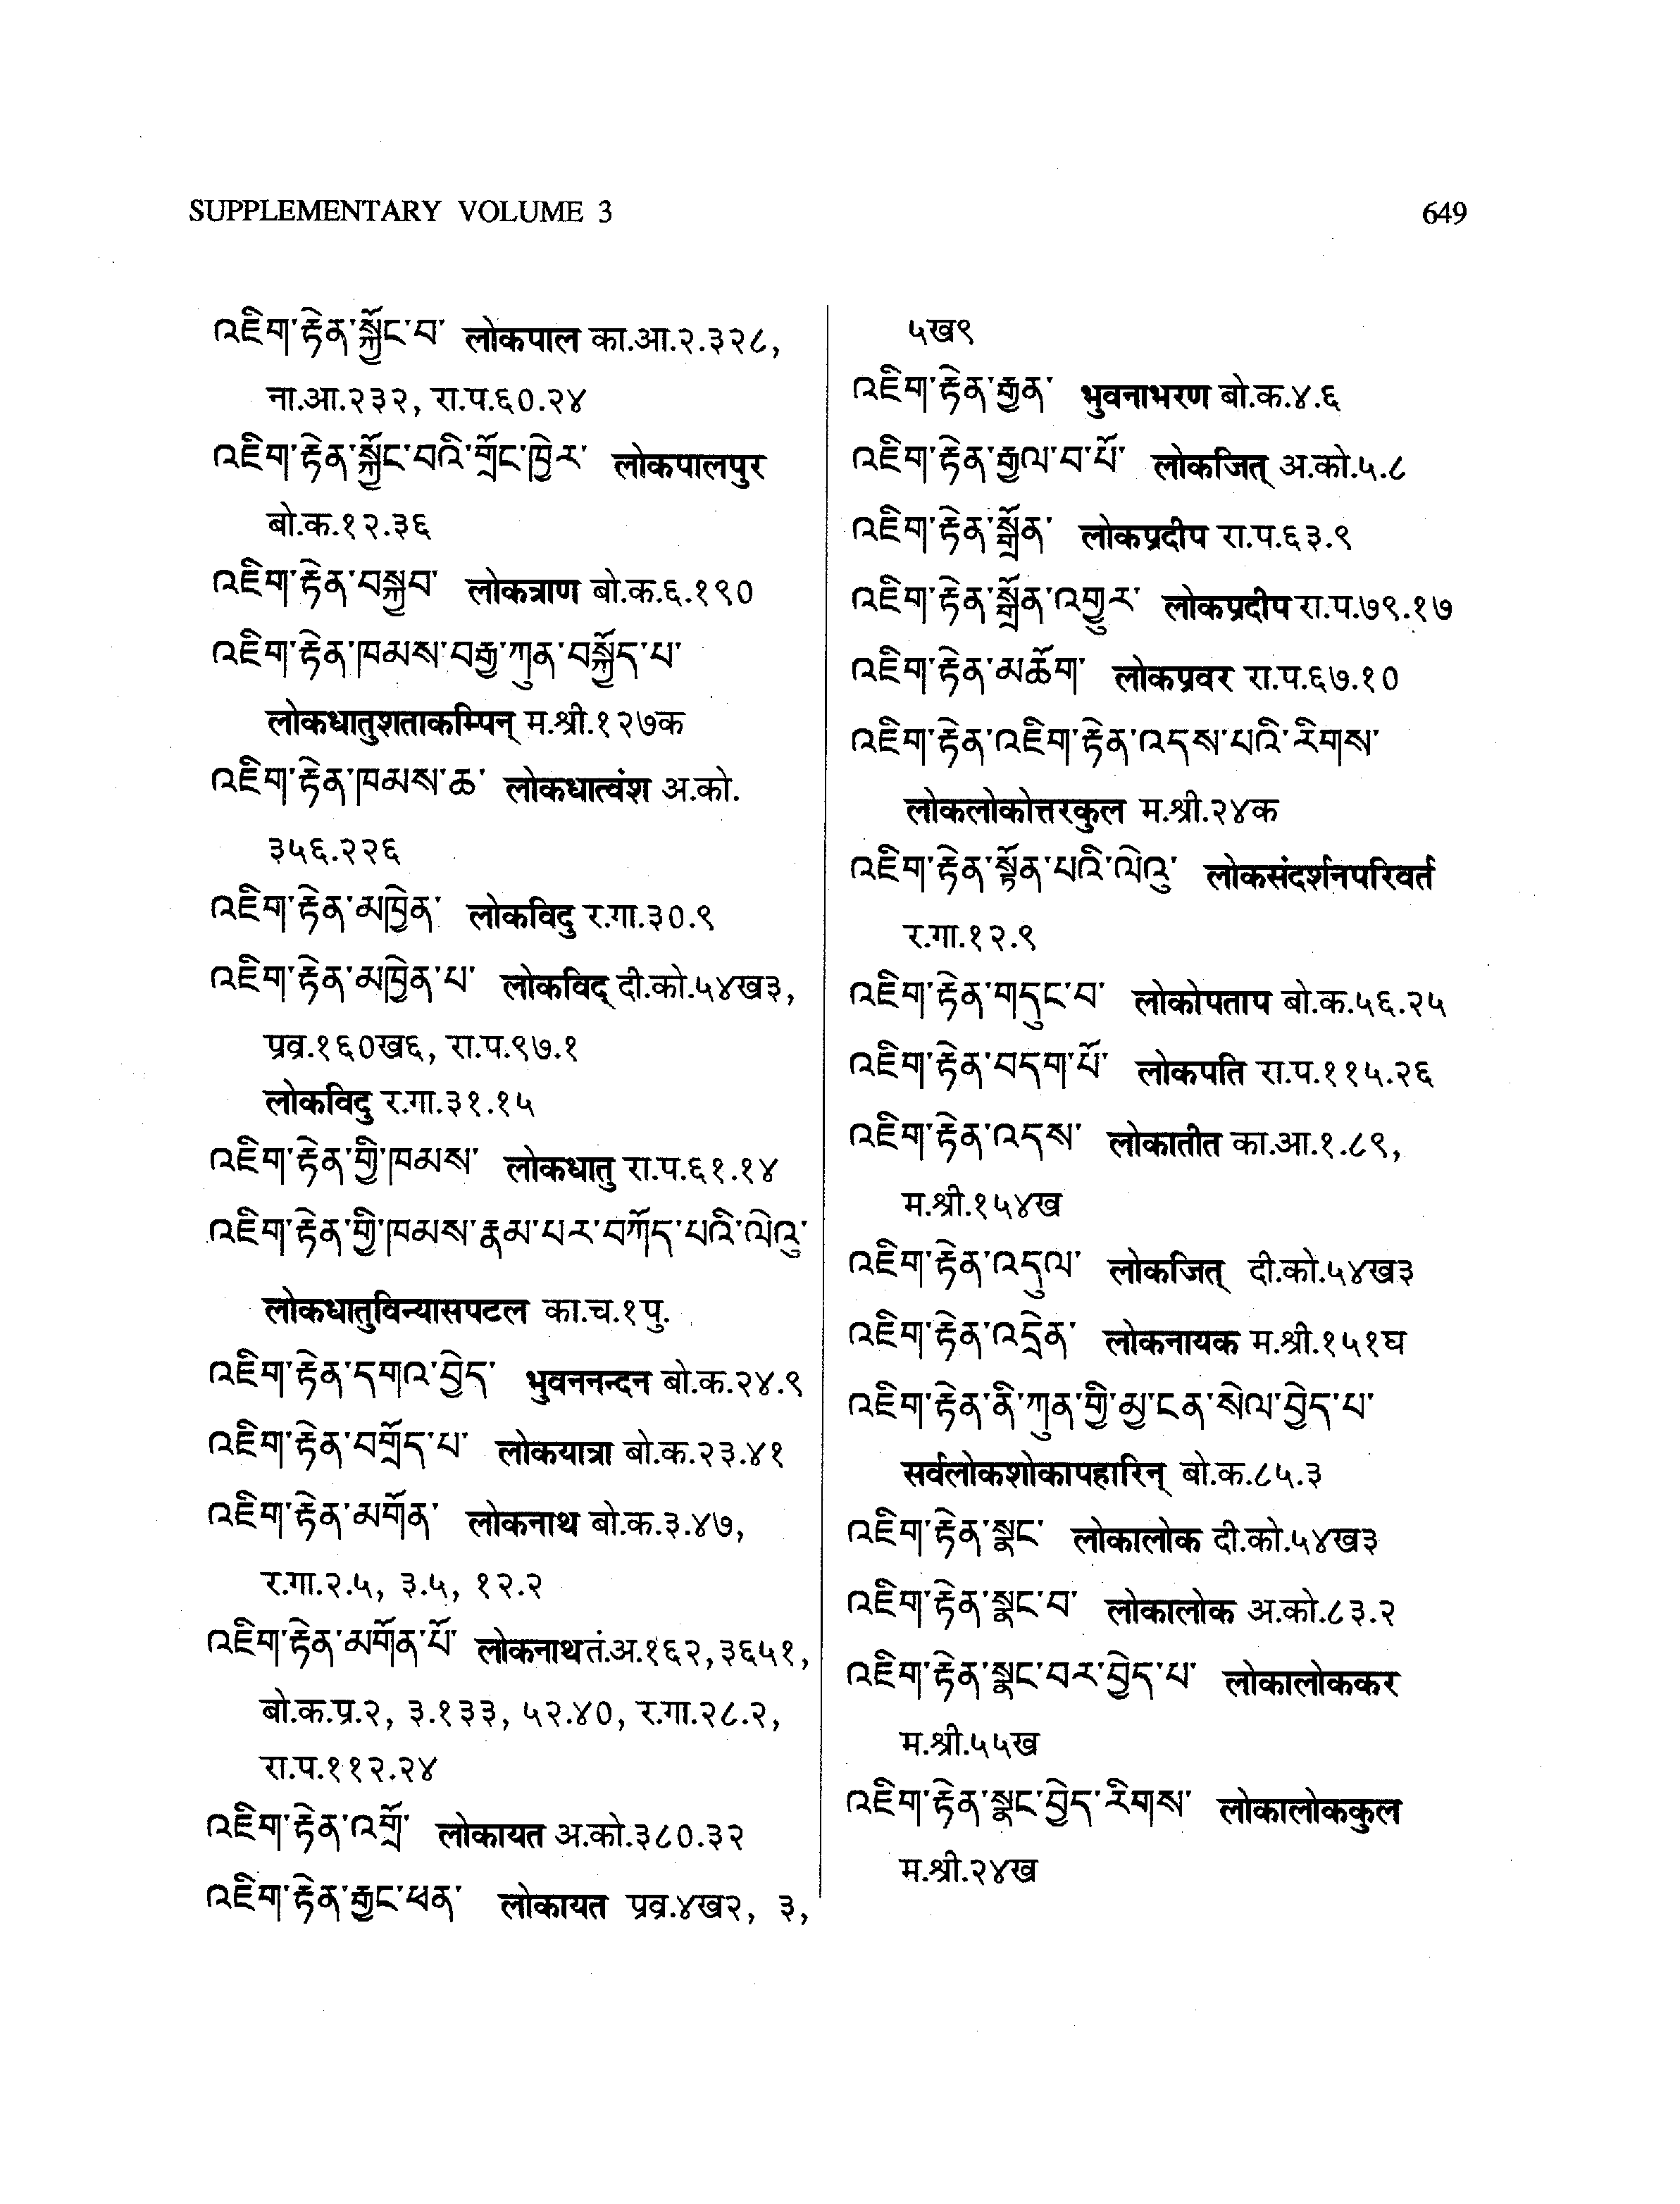 SUPPLEMENTARY VOLUME 3 649
འཇིག་རྟེན་སྐྱོང་བ་ लोकपाल का.आ.२.३२८,
ना.आ.२३२, रा.प.६०.२४
འཇིག་རྟེན་སྐྱོང་བའི་གྲོང་ཁྱེར་ लोकपालपुर
बो.क.१२.३६
འཇིག་རྟེན་བསྐྱབ་ लोकत्राण बो.क.६.१९०
འཇིག་རྟེན་ཁམས་བརྒྱ་ཀུན་བསྐྱོད་པ་
लोकधातुशताकम्पिन् म.श्री.१२७क
འཇིག་རྟེན་ཁམས་ཆ་ लोकधात्वंश अ.को.
३५६.२२६
འཇིག་རྟེན་མཁྱེན་ लोकविदु र.गा.३०.९
འཇིག་རྟེན་མཁྱེན་པ་ लोकविद् दी.को.५४ख३,
प्रव्र.१६०ख६, रा.प.९७.१
लोकविदु र.गा.३१.१५
འཇིག་རྟེན་གྱི་ཁམས་ लोकधातु रा.प.६१.१४
འཇིག་རྟེན་གྱི་ཁམས་རྣམ་པར་བཀོད་པའི་ལེའུ་
लोकधातुविन्यासपटल का.च.१पु.
འཇིག་རྟེན་དགའ་བྱེད་ भुवननन्दन बो.क.२४.९
འཇིག་རྟེན་བགྲོད་པ་ लोकयात्रा बो.क.२३.४१
འཇིག་རྟེན་མགོན་ लोकनाथ बो.क.३.४७,
र.गा.२.५, ३.५, १२.२
འཇིག་རྟེན་མགོན་པོ་ लोकनाथ तं.अ.१६२, ३६५१,
बो.क.प्र.२, ३.१३३, ५२.४०, र.गा.२८.२,
रा.प.११२.२४
འཇིག་རྟེན་འགྲོ་ लोकायत अ.को.३८०.३२
འཇིག་རྟེན་རྒྱང་ཕན་ लोकायत प्रव्र.४ख२, ३,
५ख९
འཇིག་རྟེན་རྒྱན་ भुवनाभरण बो.क.४.६
འཇིག་རྟེན་རྒྱལ་བ་པོ་ लोकजित् अ.को.५.८
འཇིག་རྟེན་སྒྲོན་ लोकप्रदीप रा.प.६३.९
འཇིག་རྟེན་སྒྲོན་འགྱུར་ लोकप्रदीप रा.प.७९.१७
འཇིག་རྟེན་མཆོག་ लोकप्रवर रा.प.६७.१०
འཇིག་རྟེན་འཇིག་རྟེན་འདས་པའི་རིགས་
लोकलोकोत्तरकुल म.श्री.२४क
འཇིག་རྟེན་སྟོན་པའི་ལེའུ་ लोकसंदर्शनपरिवर्त
र.गा.१२.९
འཇིག་རྟེན་གདུང་བ་ लोकोपताप बो.क.५६.२५
འཇིག་རྟེན་བདག་པོ་ लोकपति रा.प.११५.२६
འཇིག་རྟེན་འདས་ लोकातीत का.आ.१.८९,
म.श्री.१५४ख
འཇིག་རྟེན་འདུལ་ लोकजित् दी.को.५४ख३
འཇིག་རྟེན་འདྲེན་ लोकनायक म.श्री.१५१घ
འཇིག་རྟེན་ནི་ཀུན་གྱི་མྱ་ངན་སེལ་བྱེད་པ་
सर्वलोकशोकापहारिन् बो.क.८५.३
འཇིག་རྟེན་སྣང་ लोकालोक दी.को.५४ख३
འཇིག་རྟེན་སྣང་བ་ लोकालोक अ.को.८३.२
འཇིག་རྟེན་སྣང་བར་བྱེད་པ་ लोकालोककर
म.श्री.५५ख
འཇིག་རྟེན་སྣང་བྱེད་རིགས་ लोकालोककुल
म.श्री.२४ख